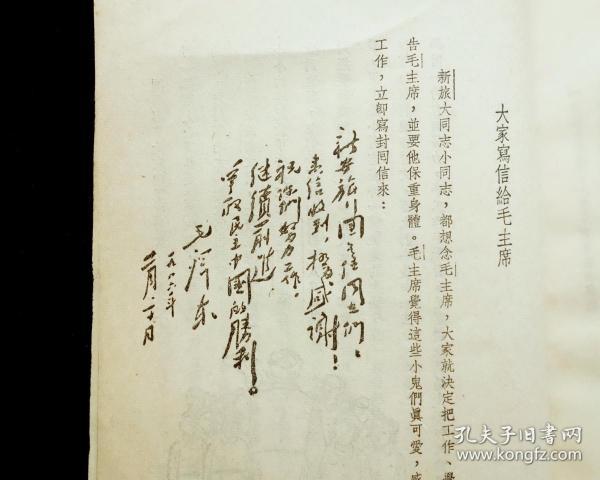 大家寫信給毛主席
新旅大同志小同志，都想念毛主席，大家就決定把工作、學
告毛主席，並要他保重身體。毛主席覺得這些小鬼們眞可愛，感
工作，立卽寫封囘信來：
新安旅行團全体同志們：
来信收到，極为感謝！
祝你們努力工作，
继續前進，
争取民主中國的勝利！
毛澤东
一九四六年
月二十日
孔夫子旧书网
www.kongfz.com